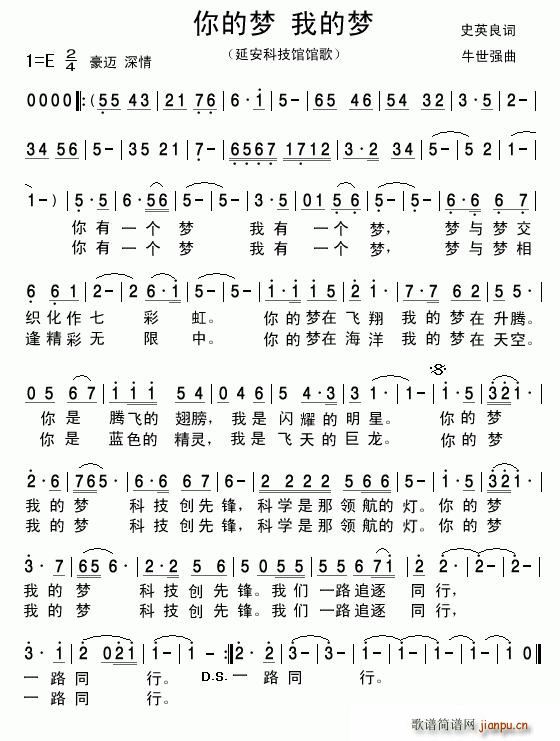 你的梦 我的梦
（延安科技馆馆歌）
史英良词
牛世强曲
1=E 2/4 豪迈 深情
0000 ‖:(55 43 | 21 76 | 6·1 | 5- | 65 45 | 54 32 | 3·5 | 2- |
34 56 | 5- | 35 21 | 7- | 6567 1712 | 3·2 34 | 5- | 5- | 1- |
1-) | 5·5 | 6·56 | 5- | 5- | 3·5 | 01 56 | 5- | 5- | 6·6 6 7 |
你有一个梦 我有一个梦， 梦与梦交
你有一个梦 我有一个梦， 梦与梦相
6 61 | 2- | 2- | 6·1 | 5- | 5- | 1·1 15 | 2 1· | 7·7 76 | 5- |
织化作七 彩 虹。 你的梦在飞翔 我的梦在升腾。
逢精彩无 限 中。 你的梦在海洋 我的梦在天空。
05 67 | 11 11 | 54 | 046 | 5 4·3 | 03 55 | 2- | 2- | 1·5 | 321· |
你是 腾飞的 翅膀，我是 闪耀的明星。 你的梦
你是 蓝色的 精灵，我是 飞天的巨龙。 你的梦
2·6 | 765· | 1·6 | 66 5 3 | 2·3 | 5·6 | 55 4 3 | 2- | 1·5 | 321· |
我的梦 科技创先锋，科学是那领航的灯。你的梦
我的梦 科技创先锋，科学是那领航的灯。你的梦
3·7 | 665· | 1·6 | 66 1 2 | 5·5 | 055 | 55 671 | 2·2 | 2- | 2- |
我的梦 科技创先锋。我们 一路追逐 同行，
我的梦 科技创先锋。我们 一路追逐 同行，
3·1 | 2 021 | 1- | 1- :‖ 2·2 | 3·2 | 1- | 1- | 1- | 10 ‖
一路同 行。 D.S. 一路 同 行。
一路同 行。
歌谱简谱网
jianpu.cn